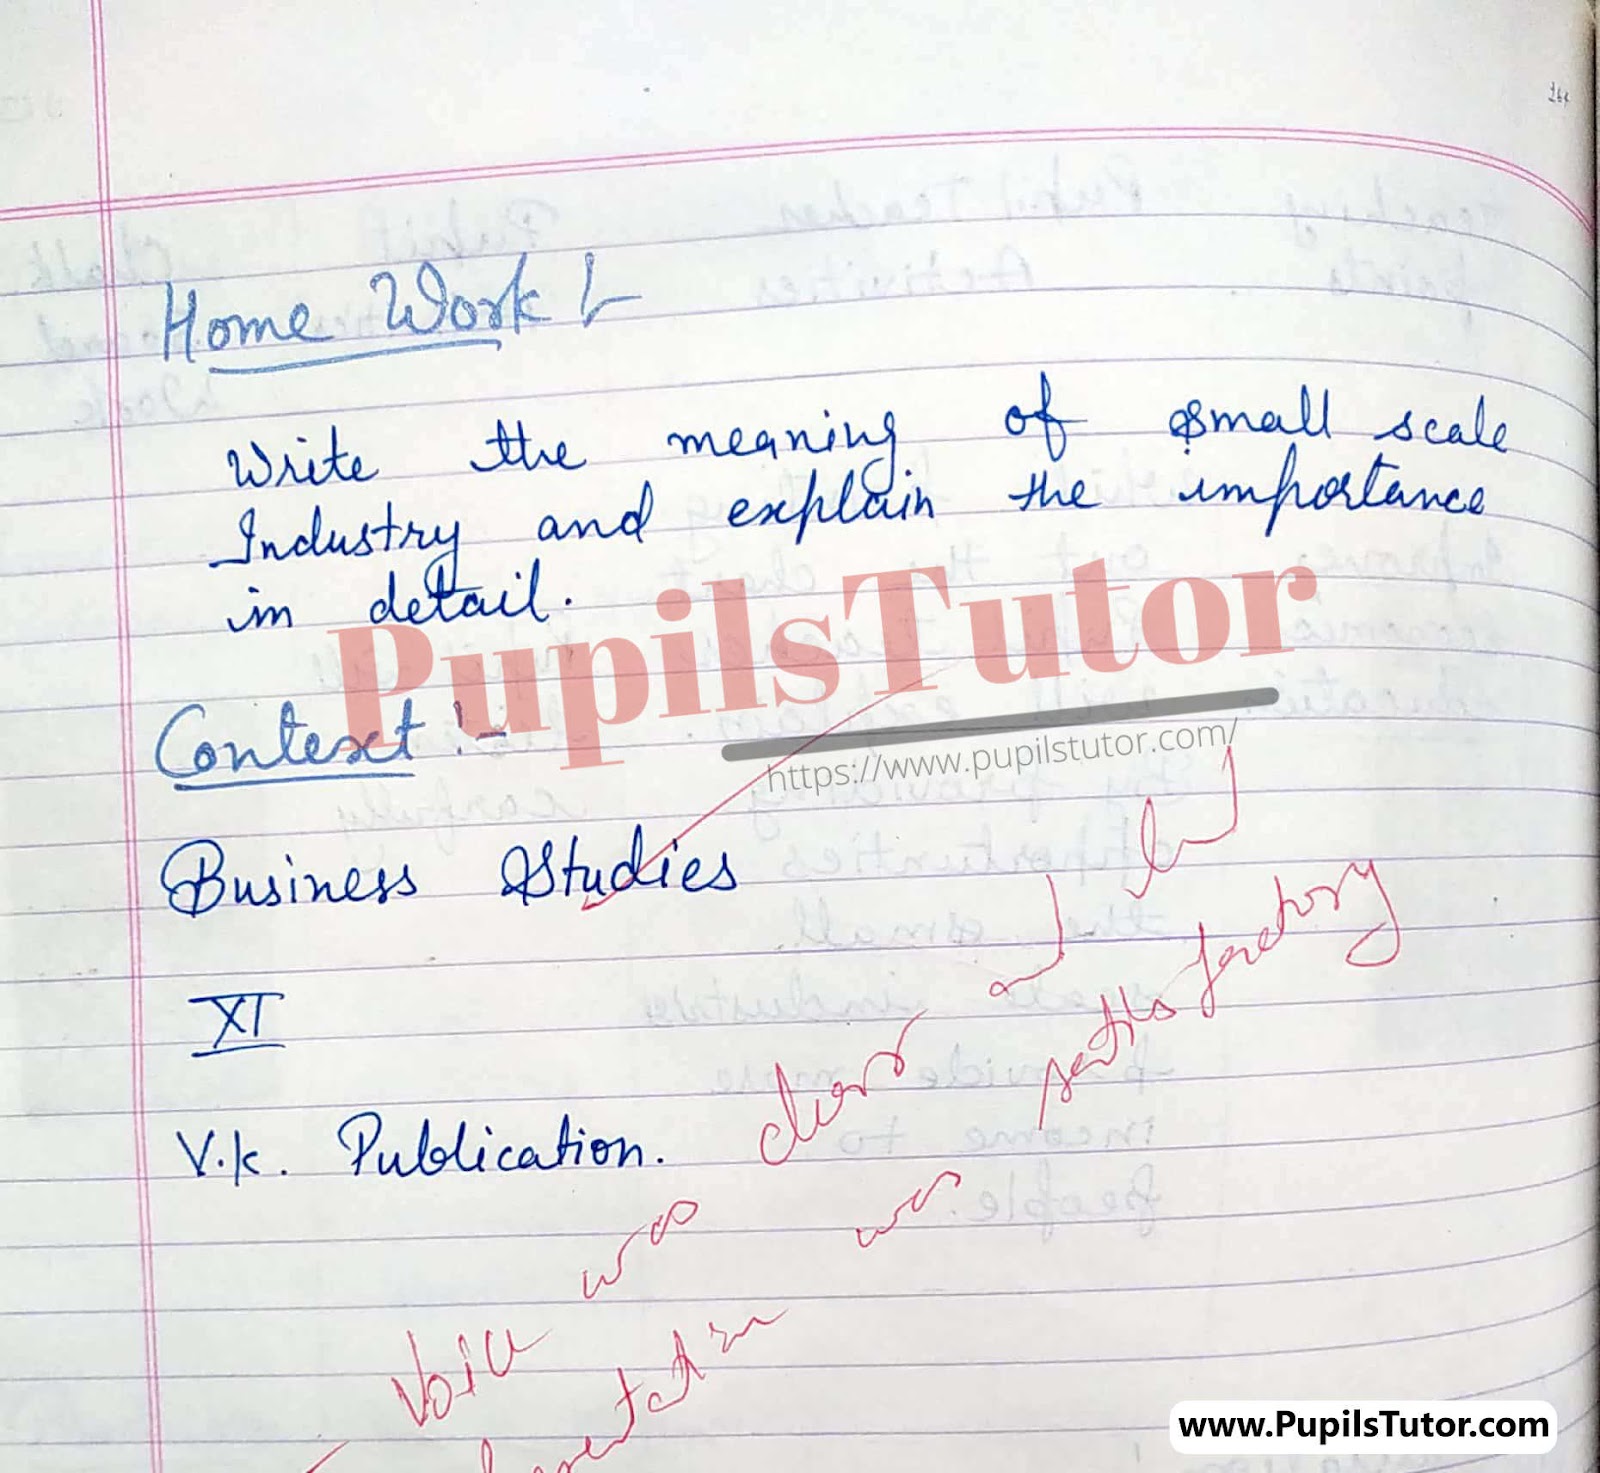 Home Work :-
Write the meaning of small scale
Industry and explain the importance
in detail.
PupilsTutor
https://www.pupilstutor.com/
Context :-
Business Studies
XI
V.K. Publication.
Voice was clear and
was satisfactory
www.PupilsTutor.com